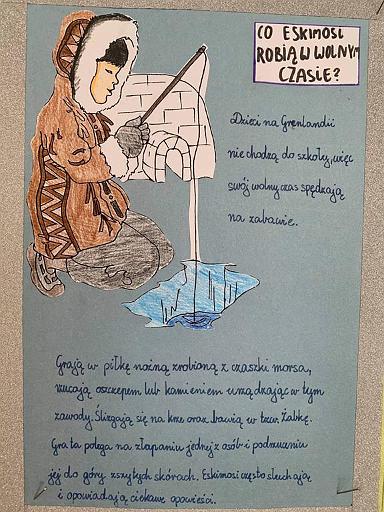 CO ESKIMOSI
ROBIĄ W WOLNYM
CZASIE?
Dzieci na Grenlandii
nie chodzą do szkoły, więc
swój wolny czas spędzają
na zabawie.
Grają w piłkę nożną zrobioną z czaszki morsa,
rzucają oszczepem lub kamieniem urządzając w tym
zawody. Ślizgają się na krze oraz bawią w tzw. Żabkę.
Gra ta polega na złapaniu jednej z osób i podrzucaniu
jej do góry zszytych skórach. Eskimosi często słuchają
i opowiadają ciekawe opowieści.